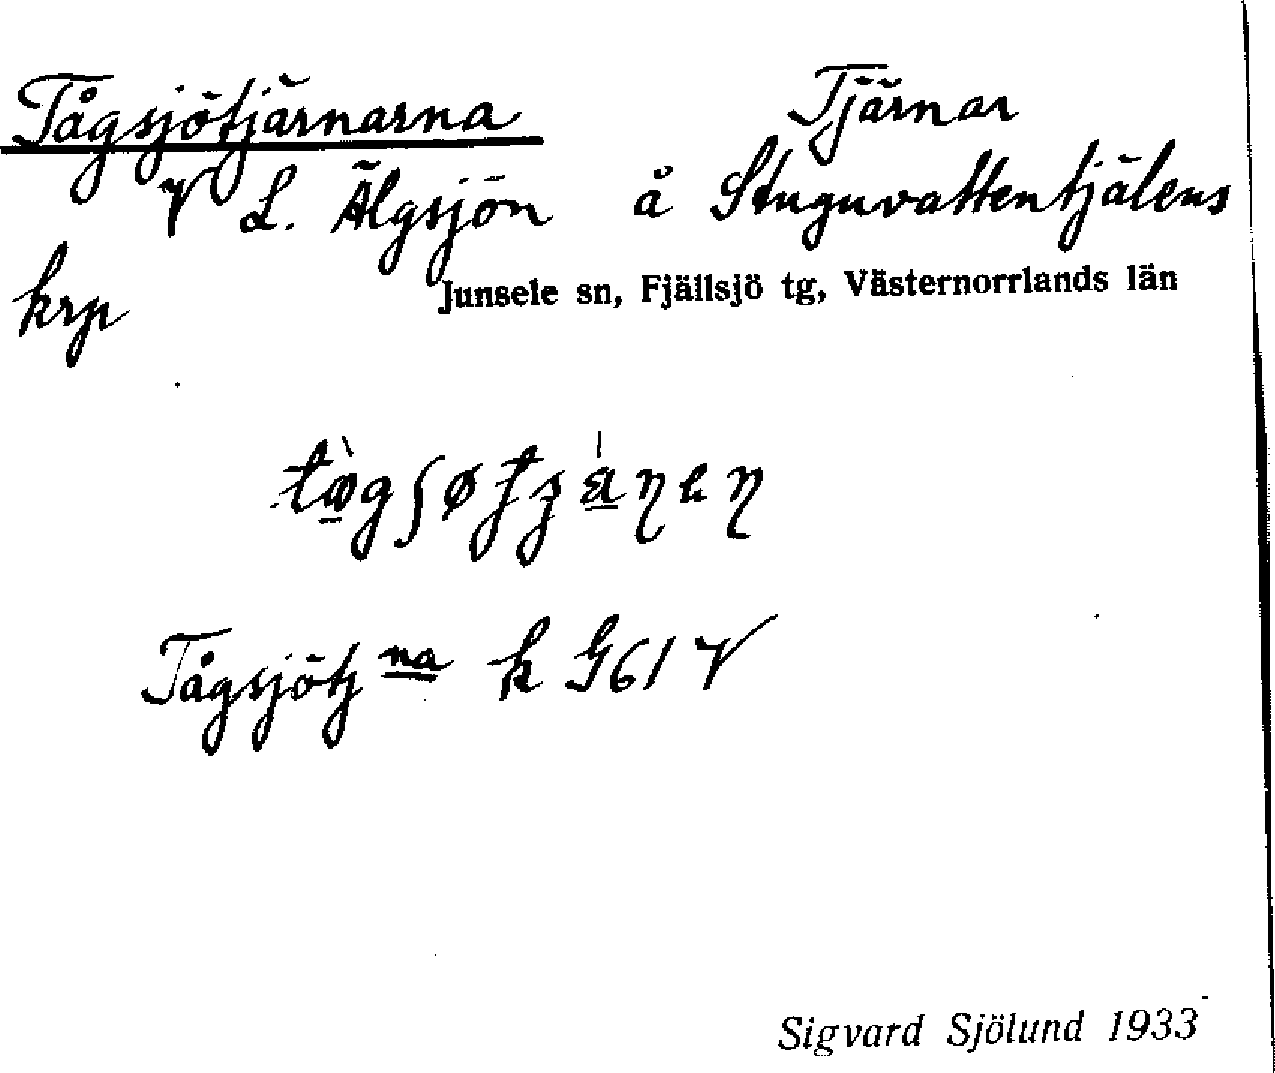 Tågsjötjärnarna Tjärnar
V L. Älgsjön å Stuguvattentjälens
krp Junsele sn, Fjällsjö tg, Västernorrlands län
Tågsjötj na k G61 V
Sigvard Sjölund 1933